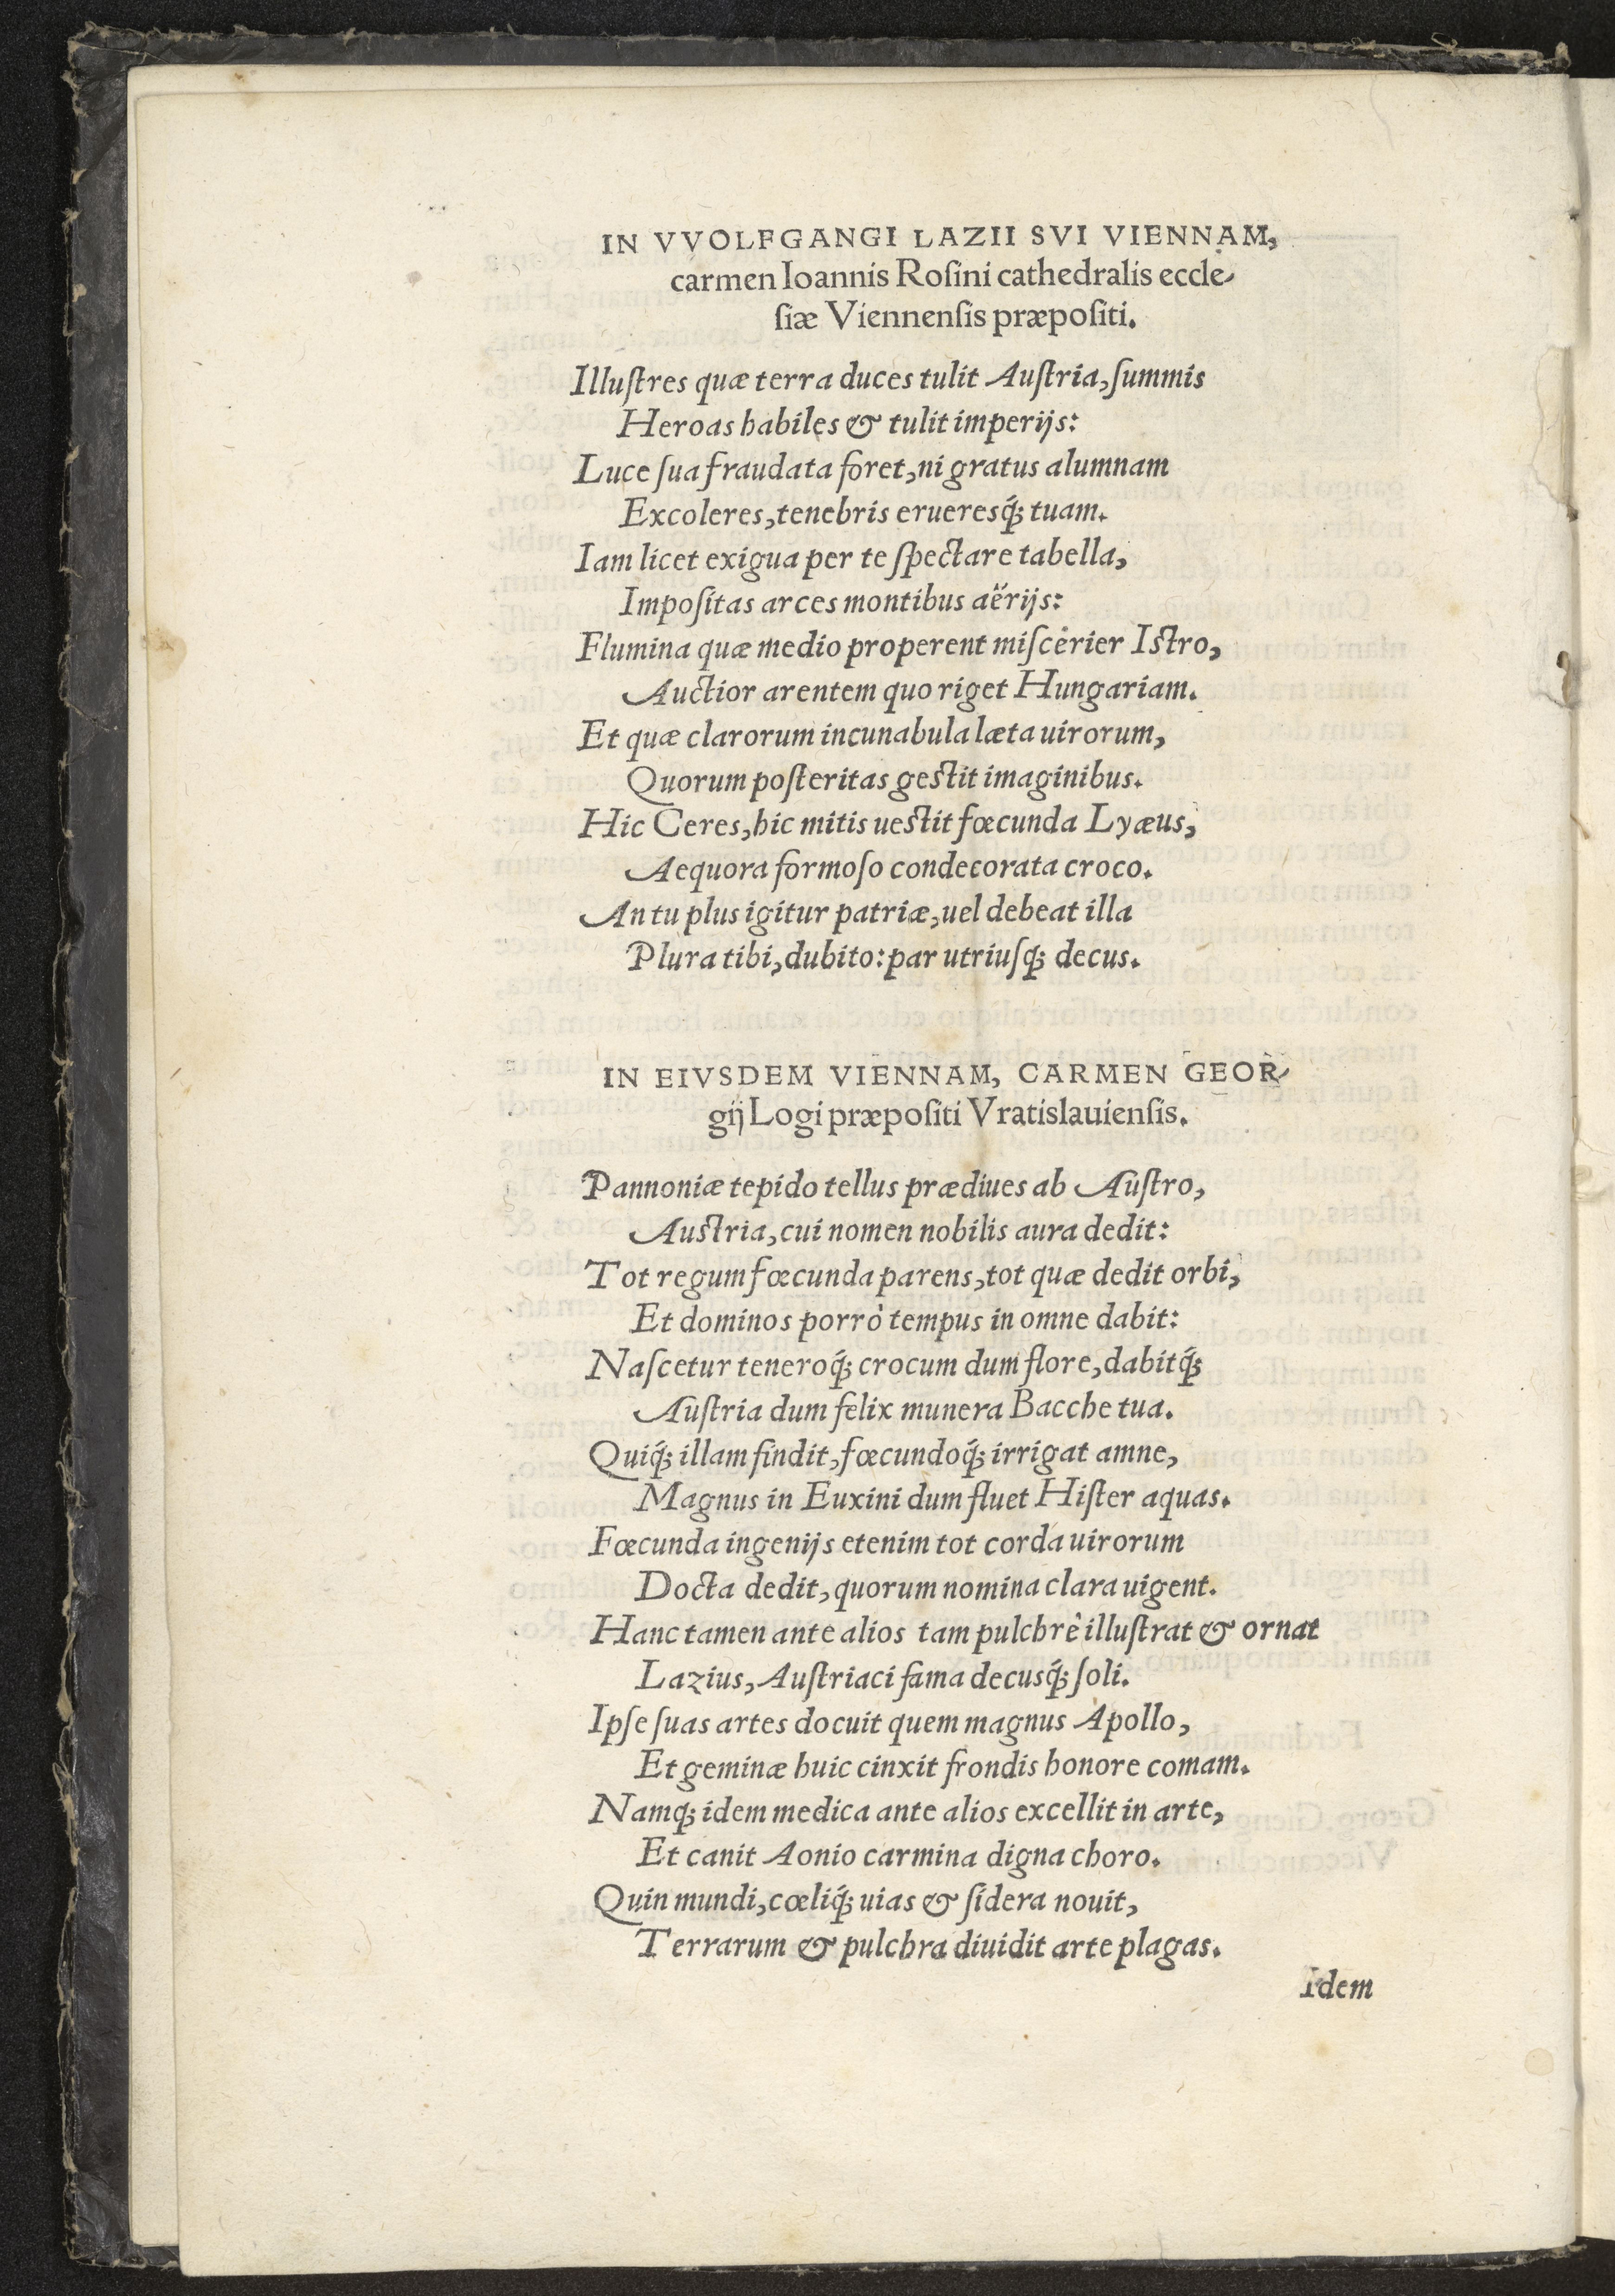 IN VVOLFGANGI LAZII SVI VIENNAM,
carmen Ioannis Roſini cathedralis eccle-
ſiæ Viennenſis præpoſiti.
Illuſtres quæ terra duces tulit Auſtria, ſummis
Heroas habiles & tulit imperijs:
Luce ſua fraudata foret, ni gratus alumnam
Excoleres, tenebris erueresq́; tuam.
Iam licet exigua per te ſpectare tabella,
Impoſitas arces montibus aërijs:
Flumina quæ medio properent miſcerier Iſtro,
Auctior arentem quo riget Hungariam.
Et quæ clarorum incunabula læta uirorum,
Quorum poſteritas geſtit imaginibus.
Hic Ceres, hic mitis ueſtit fœcunda Lyæus,
Aequora formoſo condecorata croco.
An tu plus igitur patriæ, uel debeat illa
Plura tibi, dubito: par utriuſq; decus.
IN EIVSDEM VIENNAM, CARMEN GEOR-
gij Logi præpoſiti Vratislauienſis.
Pannoniæ tepido tellus prædiues ab Auſtro,
Auſtria, cui nomen nobilis aura dedit:
Tot regum fœcunda parens, tot quæ dedit orbi,
Et dominos porrò tempus in omne dabit:
Naſcetur teneroq́; crocum dum flore, dabitq́;
Auſtria dum felix munera Bacche tua.
Quiq́; illam findit, fœcundoq́; irrigat amne,
Magnus in Euxini dum fluet Hiſter aquas.
Fœcunda ingenijs etenim tot corda uirorum
Docta dedit, quorum nomina clara uigent.
Hanc tamen ante alios tam pulchrè illuſtrat & ornat
Lazius, Auſtriaci fama decusq́; ſoli.
Ipſe ſuas artes docuit quem magnus Apollo,
Et geminæ huic cinxit frondis honore comam.
Namq; idem medica ante alios excellit in arte,
Et canit Aonio carmina digna choro.
Quin mundi, cœliq́; uias & ſidera nouit,
Terrarum & pulchra diuidit arte plagas.
Idem